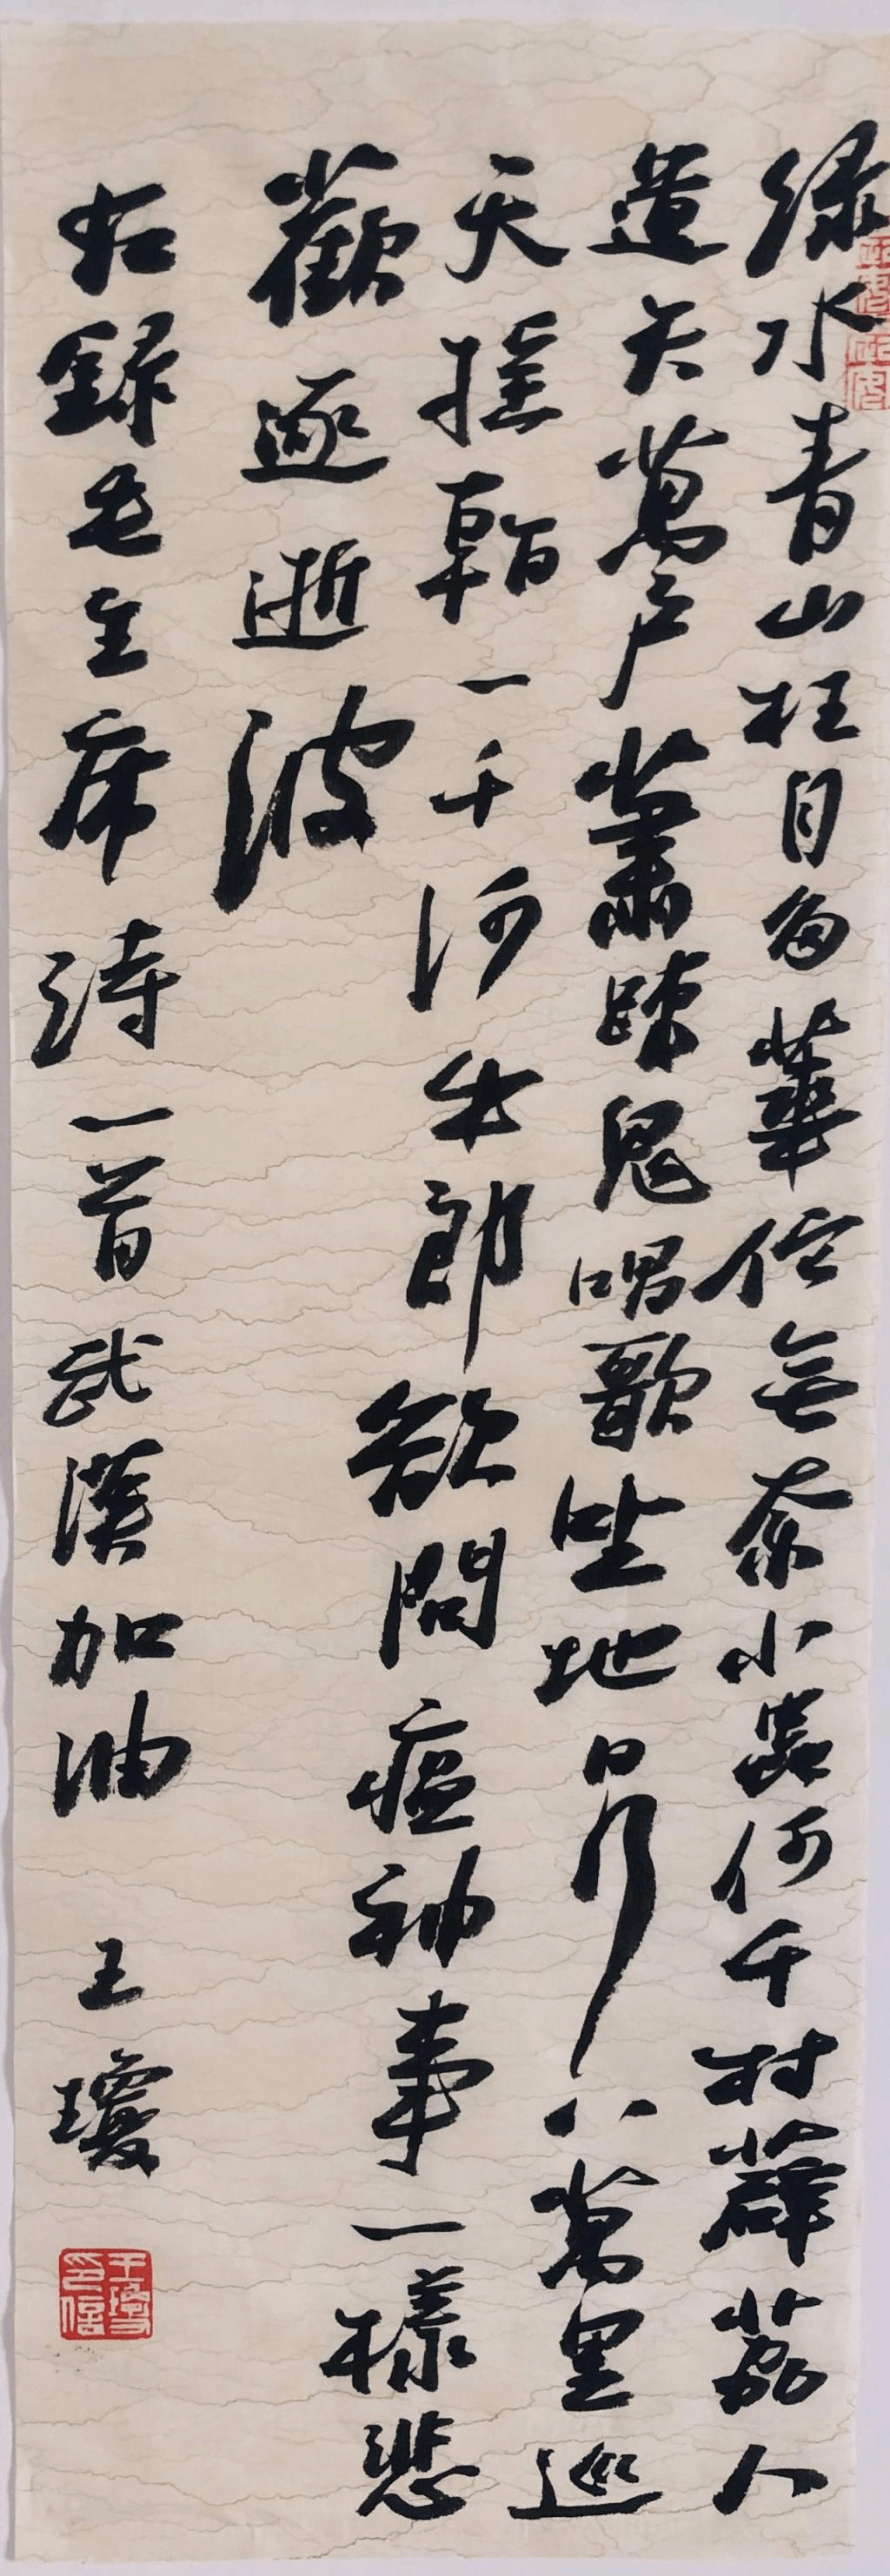 绿水青山枉自多華佗無奈小蟲何千村薜荔人
遺矢萬户蕭疎鬼唱歌坐地日行八萬里巡
天摇看一千河牛郎欲問瘟神事一樣悲
歡逐逝波
録毛主席詩一首武漢加油 王瓊
王瓊印信